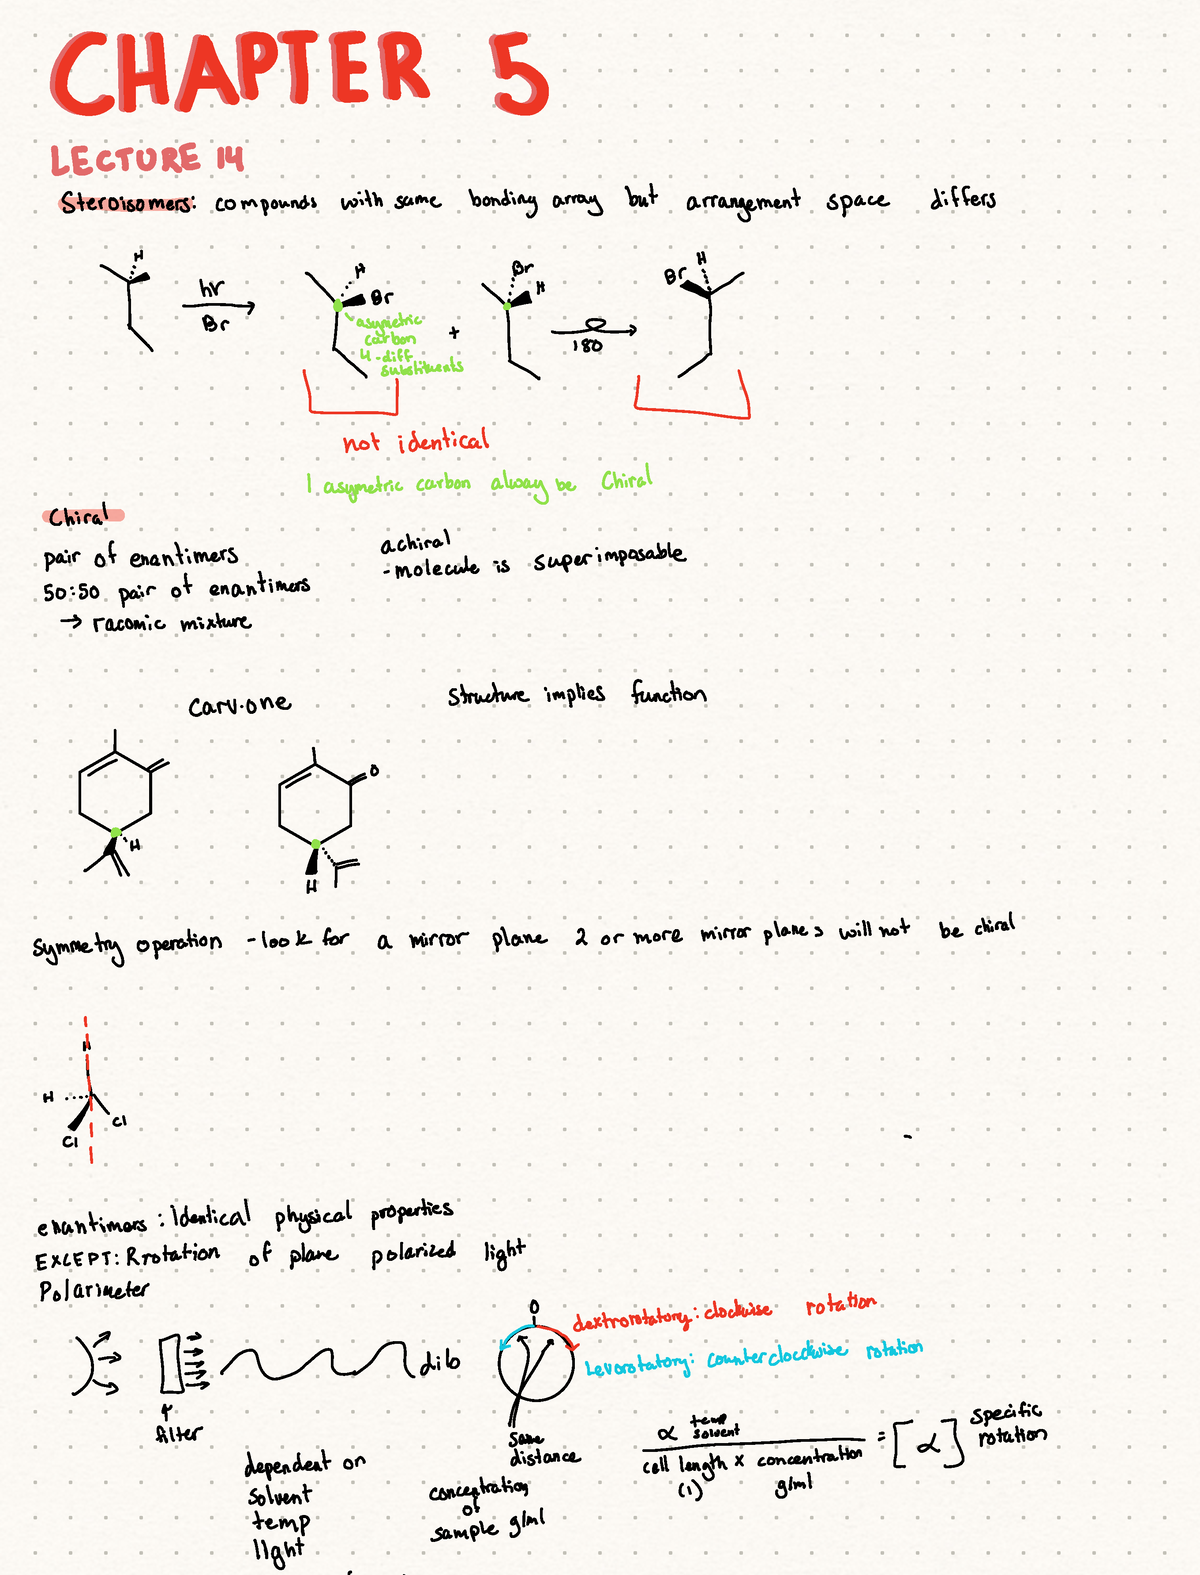 CHAPTER 5
LECTURE 14
Steroisomers: compounds with same bonding array but arrangement space differs
H
hv
Br
H
Br
asymetric
carbon
4-diff
substituents
+
Br
H
180
Br
H
not identical
1 asymetric carbon alway be Chiral
Chiral
pair of enantimers
50:50 pair of enantimers
→ racomic mixture
achiral
- molecule is superimposable
Carv.one
Structure implies function
H
O
H
Symmetry operation - look for a mirror plane 2 or more mirror planes will not be chiral
H
H
Cl
Cl
enantimers: Identical physical properties
EXCEPT: Rrotation of plane polarized light
Polarimeter
filter
dilo
0
dextrorotatory: clockwise rotation
Levorotatory: counterclockwise rotation
same
distance
dependent on
solvent
temp
light
concentration
of
sample g/ml
α temp
solvent
cell length x concentration
(1) g/ml
= [α] specific
rotation